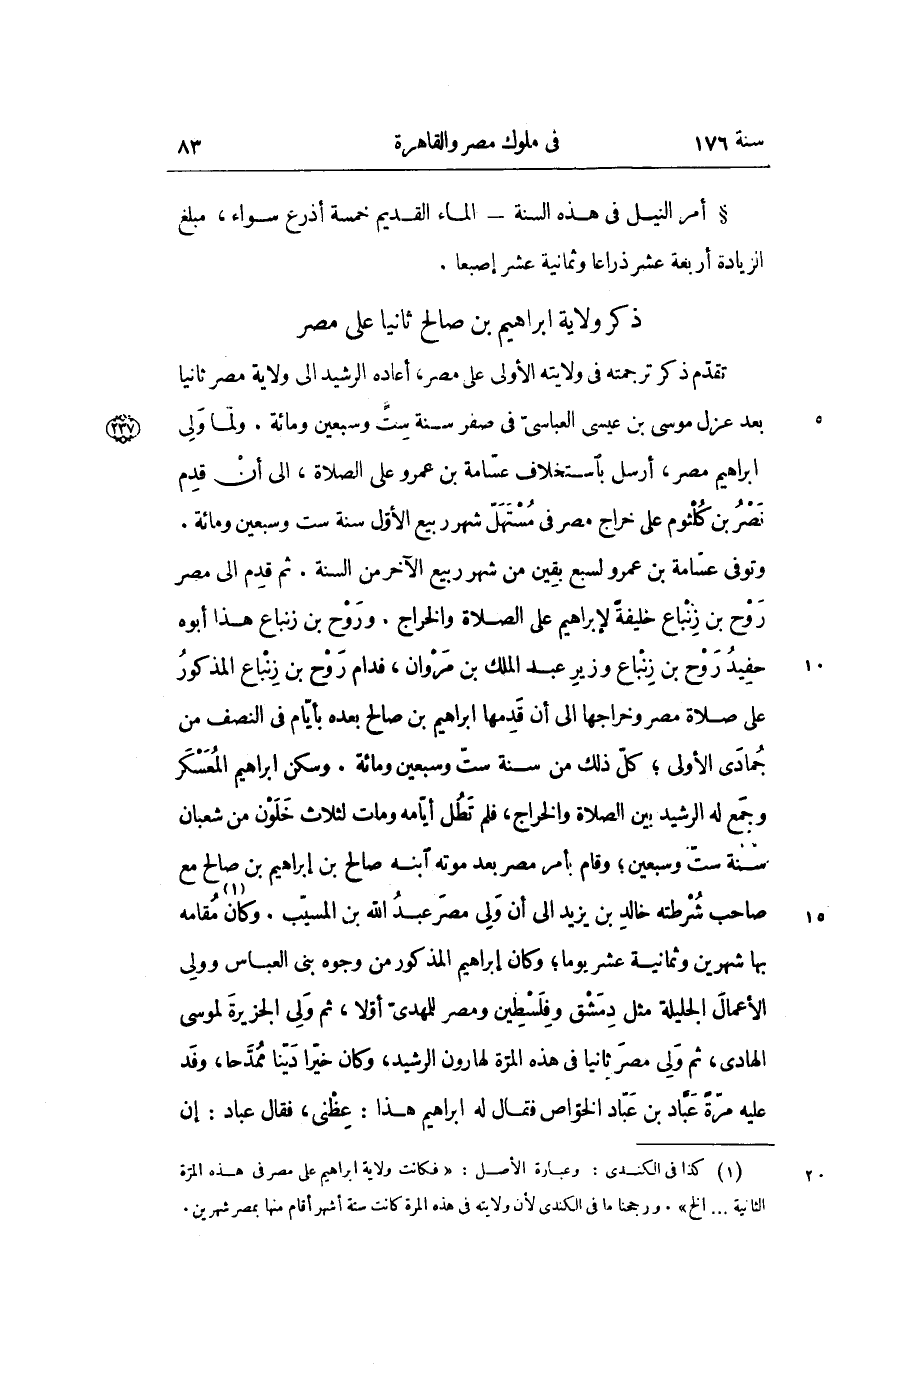 سنة ١٧٦ فى ملوك مصر والقاهرة ٨٣
§ أمر النيل فى هذه السنة — الماء القديم خمسة أذرع سواء ، مبلغ
الزيادة أربعة عشر ذراعا وثمانية عشر إصبعا .
ذكر ولاية ابراهيم بن صالح ثانيا على مصر
تقدّم ذكر ترجمته فى ولايته الأولى على مصر، أعاده الرشيد الى ولاية مصر ثانيا
بعد عزل موسى بن عيسى العباسىّ فى صفر سنة ستّ وسبعين ومائة . ولمّا وَلِى ٥ ٢٣٧
ابراهيم مصر ، أرسل بآستخلاف عسّامة بن عمرو على الصلاة ، الى أنْ قدم
نَصْرُ بن كُلْثوم على خراج مصر فى مُسْتَهَلّ شهر ربيع الأوّل سنة ست وسبعين ومائة .
وتوفى عسّامة بن عمرو لسبع بقِين من شهر ربيع الآخر من السنة . ثم قدِم الى مصر
رَوْح بن زِنْباع خليفةً لإبراهيم على الصلاة والخراج . ورَوْح بن زنباع هذا أبوه
حفِيدُ رَوْح بن زِنْباع وزيرِ عبد الملك بن مَرْوان ، فدام رَوْح بن زِنْباع المذكورُ ١٠
على صلاة مصر وخراجها الى أن قَدِمها ابراهيم بن صالح بعده بأيّام فى النصف من
جُمادَى الأولى ؛ كلّ ذلك من سنة ستّ وسبعين ومائة . وسكن ابراهيم المُعَسْكَر
وجمّع له الرشيد بين الصلاة والخراج، فلم تَطُل أيّامه ومات لثلاث خَلَوْن من شعبان
سنة ستّ وسبعين؛ وقام بأمر مصر بعد موته آبنه صالح بن إبراهيم بن صالح مع
صاحب شُرْطته خالدِ بن يزيد الى أن وَلِى مصرَ عبدُ الله بن المسيّب . وكان مُقامه (١) ١٥
بها شهرين وثمانية عشر يوما؛ وكان إبراهيم المذكور من وجوه بنى العباس وولِى
الأعمالَ الجليلة مثل دِمَشْق وفِلَسْطِين ومصر للمهدىّ أوّلا ، ثم وَلِى الجزيرةَ لموسى
الهادى ، ثم وَلِى مصرَ ثانيا فى هذه المرّة لهارون الرشيد، وكان خيّرا دَيّنا مُمَدَّحا، وفَد
عليه مرّةً عَبَّاد بن عَبّاد الخوّاص فقال له ابراهيم هذا : عِظْنى ، فقال عباد : إن
(١) كذا فى الكندى : وعبارة الأصل : « فكانت ولاية ابراهيم على مصر فى هذه المرّة ٢٠
الثانية ... الخ» . ورجحنا ما فى الكندى لأن ولايته فى هذه المرة كانت ستة أشهر أقام منها بمصر شهرين .